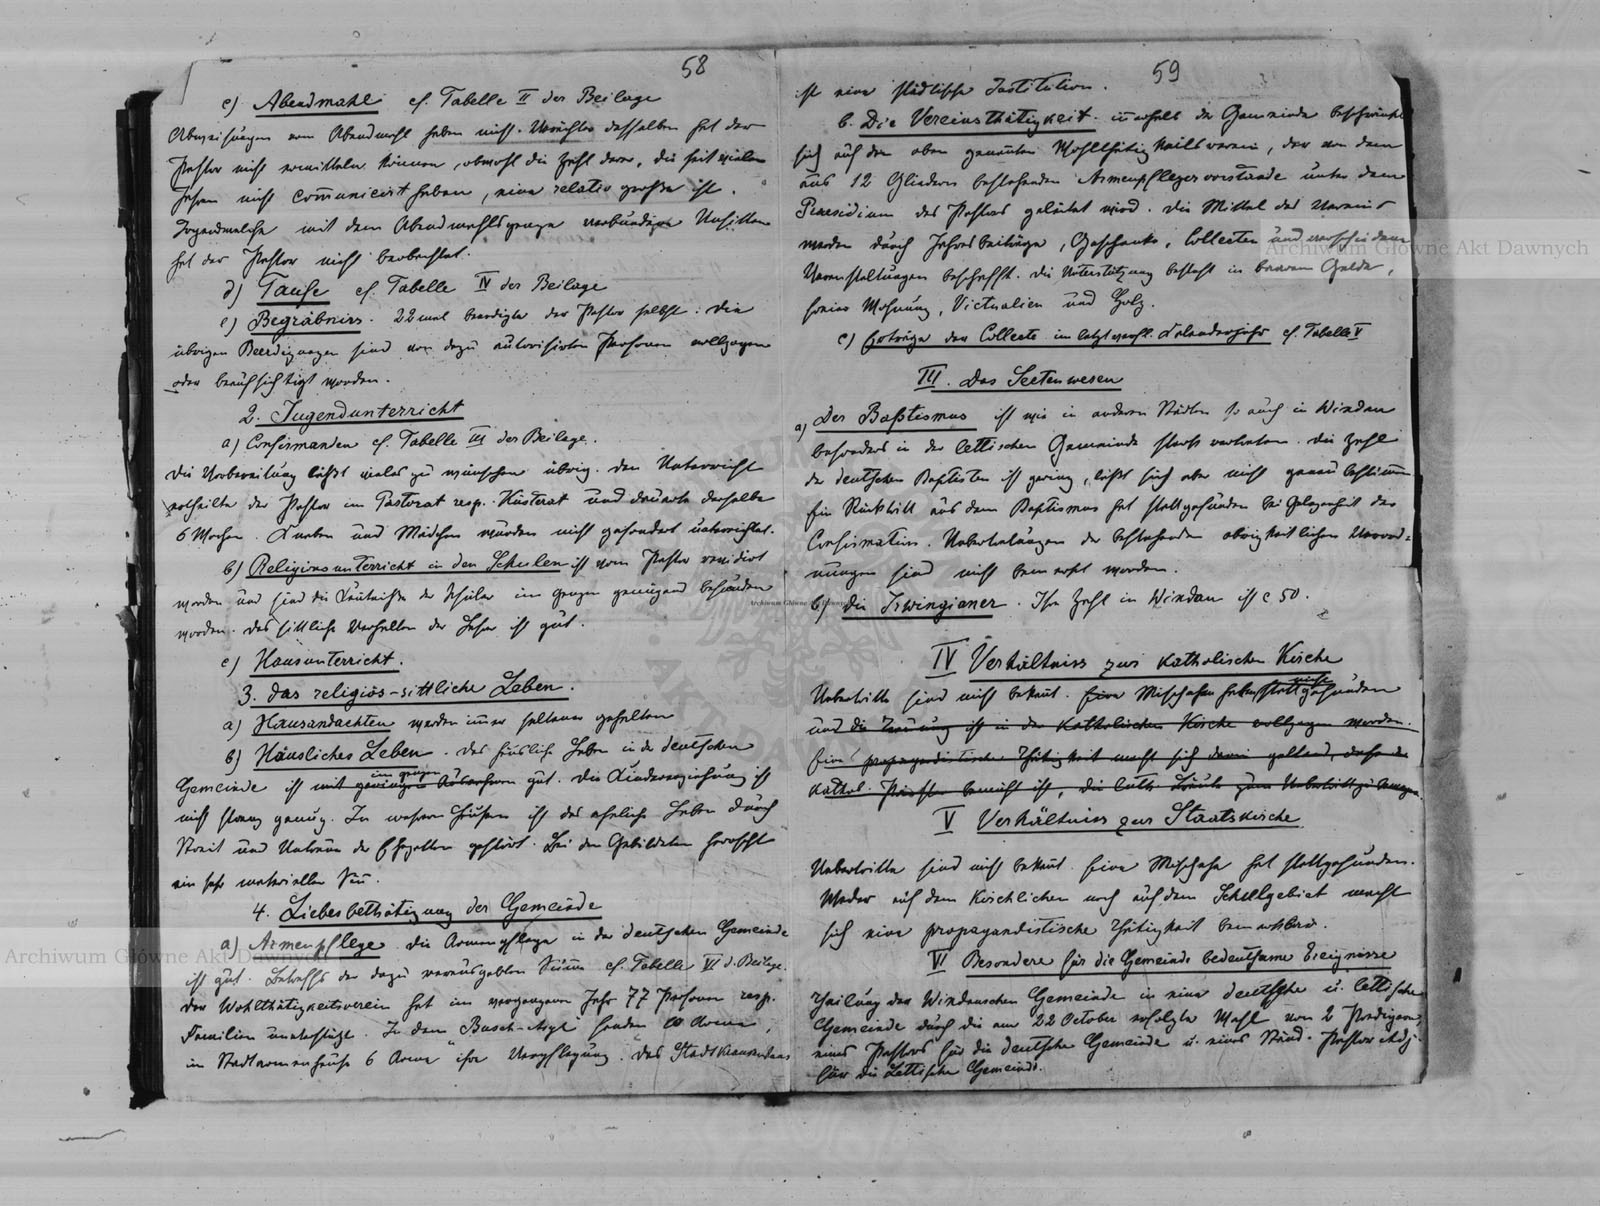 58
c) Abendmahl cf. Tabelle II der Beilage
Abweisungen vom Abendmahl haben nicht. Verächter desselben hat der
Pastor nicht ermitteln können, obwohl die Zahl derer, die seit vielen
Jahren nicht communicirt haben, eine relativ große ist.
Irgendwelche mit dem Abendmahlsgange verbundene Unsitten
hat der Pastor nicht beobachtet.
d) Taufe cf. Tabelle IV der Beilage
e) Begräbniss. 22 mal beerdigte der Pastor selbst: Die
übrigen Beerdigungen sind von dazu autorisirten Personen vollzogen
oder berücksichtigt worden.
2. Jugendunterricht
a) Confirmanden cf. Tabelle III der Beilage.
Die Vorbereitung läßt vieles zu wünschen übrig. Den Unterricht
ertheilte der Pastor im Pastorat resp. Küsterat und dauerte derselbe
6 Wochen. Knaben und Mädchen wurden nicht gesondert unterrichtet.
b) Religionsunterricht in den Schulen ist vom Pastor revidirt
worden und sind die Kentniße der Schüler im Ganzen genügend befunden
worden. Das sittliche Verhalten der Lehrer ist gut.
c) Hausunterricht.
3. das religiös-sittliche Leben.
a) Hausandachten werden immer seltener gehalten
b) Häusliches Leben. Das häusliche Leben in der deutschen
im ganzen
Gemeinde ist mit geringen Ausnahmen gut. Die Kindererziehung ist
nicht streng genug. In mehreren Häusern ist das eheliche Leben durch
Streit und Untreue der Ehegatten gestört. Bei den Gebildeten herrscht
ein sehr materieller Sinn.
4. Liebesbethätigung der Gemeinde
a) Armenpflege. Die Armenpflege in der deutschen Gemeinde
ist gut. Betreffs der dazu verausgabten Summe cf. Tabelle VI d. Beilage.
Der Wohlthätigkeitsverein hat im vergangenen Jahr 77 Personen resp.
Familien unterstützt. In dem Busch-Asyl fanden Arme,
im Stadtarmenhause 6 Arme ihre Verpflegung. Das Stadtkrankenhaus
59
ist eine städtische Institution.
b. Die Vereinsthätigkeit innerhalb der Gemeinde beschränkt
sich auf den oben genannten Wohlthätigkeitsverein, der von dem
aus 12 Gliedern bestehenden Armenpflegervorstande unter dem
Praesidium des Pastors geleitet wird. Die Mittel des Vereins
werden durch Jahresbeiträge, Geschenke, Collecten und verschiedene
Veranstaltungen beschafft. Die Unterstützung besteht in baarem Gelde,
freier Wohnung, Victualien und Holz.
c) Erträge der Collecte im letztverfl. Kalenderjahr cf. Tabelle V
III. Das Sectenwesen
a) Der Baptismus ist wie in anderen Städten so auch in Windau
besonders in der lettischen Gemeinde stark vertreten. Die Zahl
der deutschen Baptisten ist gering, läßt sich aber nicht genau bestimmen
Ein Rücktritt aus dem Baptismus hat stattgefunden bei Gelegenheit der
Confirmation. Uebertretungen der bestehenden obrigkeitlichen Verord=
nungen sind nicht bemerkt worden.
b) Die Irwingianer. Ihre Zahl in Windau ist c 50.
IV Verhältniss zur katholischen Kirche
nicht
Uebertritte sind nicht bekannt. Eine Mischehen haben stattgefunden
und die Trauung ist in der katholischen Kirche vollzogen worden.
Eine propagandistische Thätigkeit macht sich darin geltend, daß der
kathol. Priester bemüht ist, die luth. Bräute zum Uebertritt zu bewegen.
V Verhältniss zur Staatskirche
Uebertritte sind nicht bekannt. Eine Mischehe hat stattgefunden.
Weder auf dem Kirchlichen noch auf dem Schulgebiet macht
sich eine propagandistische Thätigkeit bemerkbar.
VI Besondere für die Gemeinde bedeutsame Ereignisse
Theilung der Windauschen Gemeinde in eine deutsche u. lettische
Gemeinde durch die am 22 October erfolgte Wahl von 2 Predigern,
eines Pastors für die deutsche Gemeinde u. eines Ständ. Pastor Adj.
für die Lettische Gemeinde.
Archiwum Główne Akt Dawnych
Archiwum Główne Akt Dawnych
Archiwum Główne Akt Dawnych